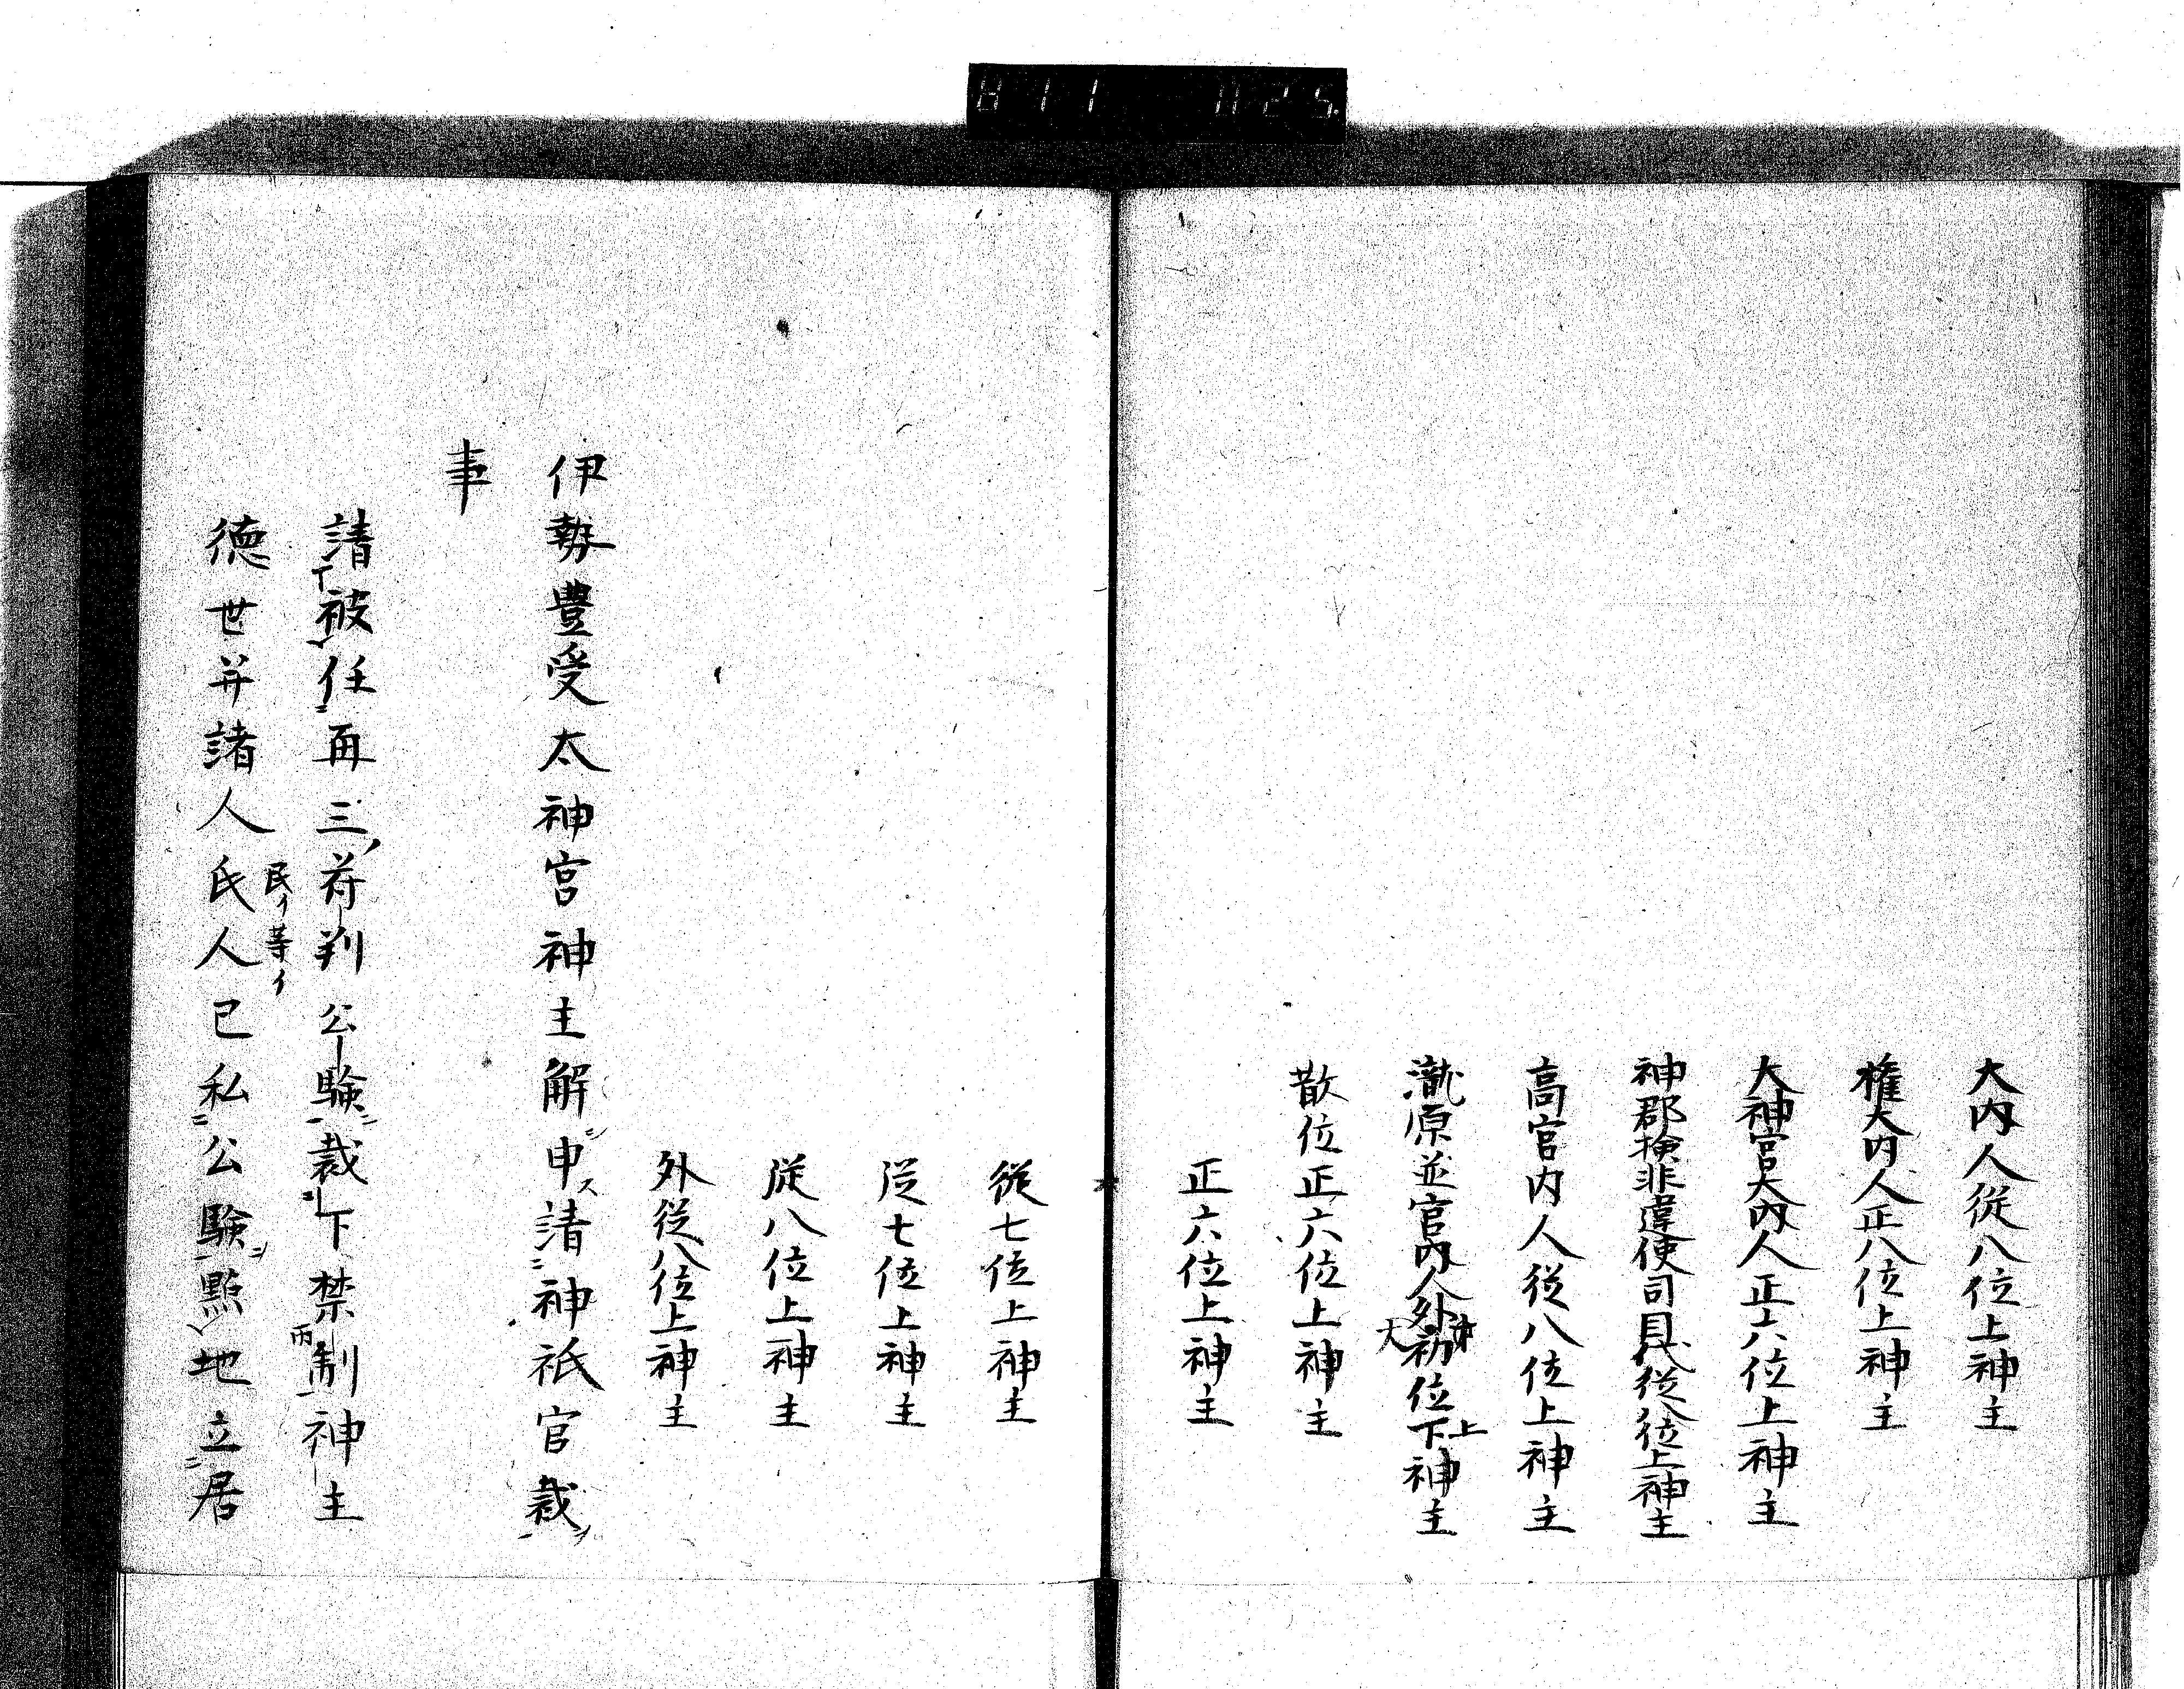 大内人従八位上神主
権大内人正八位上神主
大神宮大内人正六位上神主
神郡検非違使司具従八位上神主
高宮内人従八位上神主
瀧原並宮内人外初位下神主
大
上
散位正六位上神主
正六位上神主
従七位上神主
従七位上神主
従八位上神主
外従八位上神主
伊勢豊受太神宮神主解申請神祇官裁
事
請被任再三符判公験裁下禁制神主
徳世并諸人氏人已私公験點地立居
民イ等イ